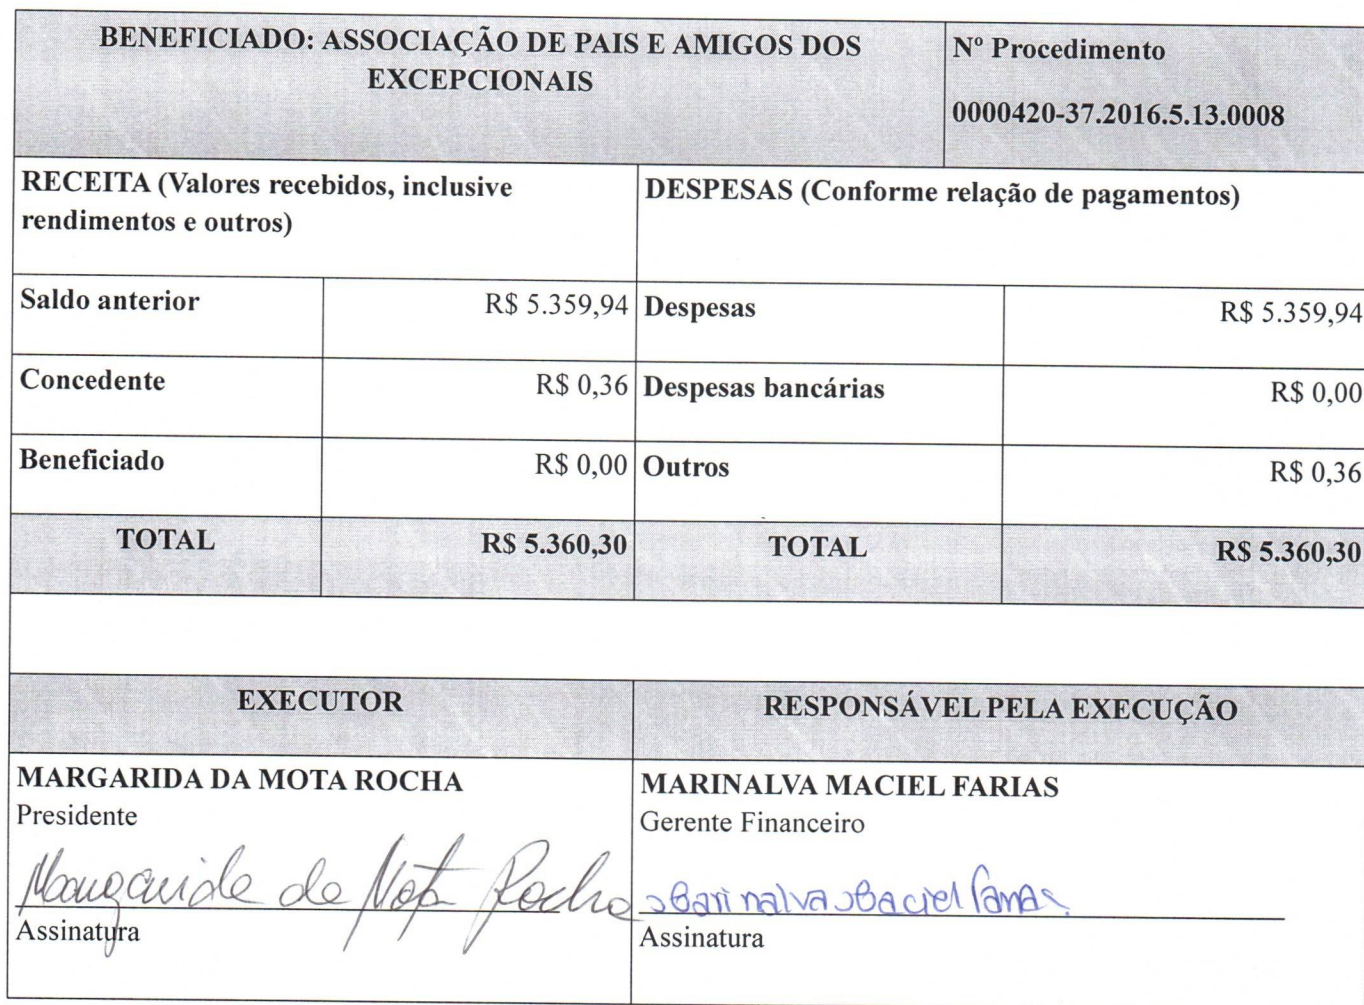 BENEFICIADO: ASSOCIAÇÃO DE PAIS E AMIGOS DOS
EXCEPCIONAIS
Nº Procedimento
0000420-37.2016.5.13.0008
RECEITA (Valores recebidos, inclusive
rendimentos e outros)
DESPESAS (Conforme relação de pagamentos)
Saldo anterior R$ 5.359,94 Despesas R$ 5.359,94
Concedente R$ 0,36 Despesas bancárias R$ 0,00
Beneficiado R$ 0,00 Outros R$ 0,36
TOTAL R$ 5.360,30 TOTAL R$ 5.360,30
EXECUTOR
RESPONSÁVEL PELA EXECUÇÃO
MARGARIDA DA MOTA ROCHA
Presidente
Margarida da Mota Rocha
Assinatura
MARINALVA MACIEL FARIAS
Gerente Financeiro
Marinalva Maciel Farias
Assinatura